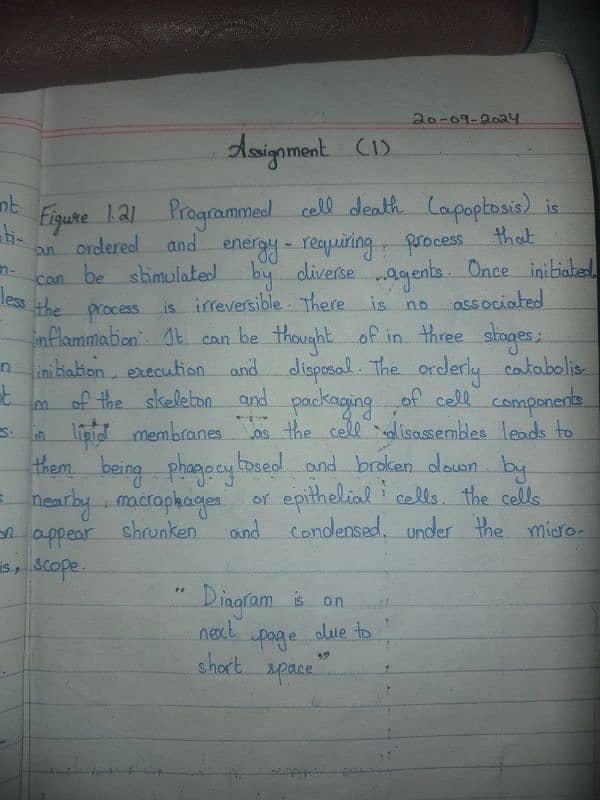 20-09-2024
Assignment (1)
Figure 1.21 Programmed cell death (apoptosis) is
an ordered and energy-requiring process that
can be stimulated by diverse agents. Once initiated,
the process is irreversible. There is no associated
inflammation. It can be thought of in three stages;
initiation, execution and disposal. The orderly catabolis-
m of the skeleton and packaging of cell components
in lipid membranes as the cell disassembles leads to
them being phagocytosed and broken down by
nearby macrophages or epithelial cells. The cells
appear shrunken and condensed, under the micro-
scope.
" Diagram is on
next page due to
short space"